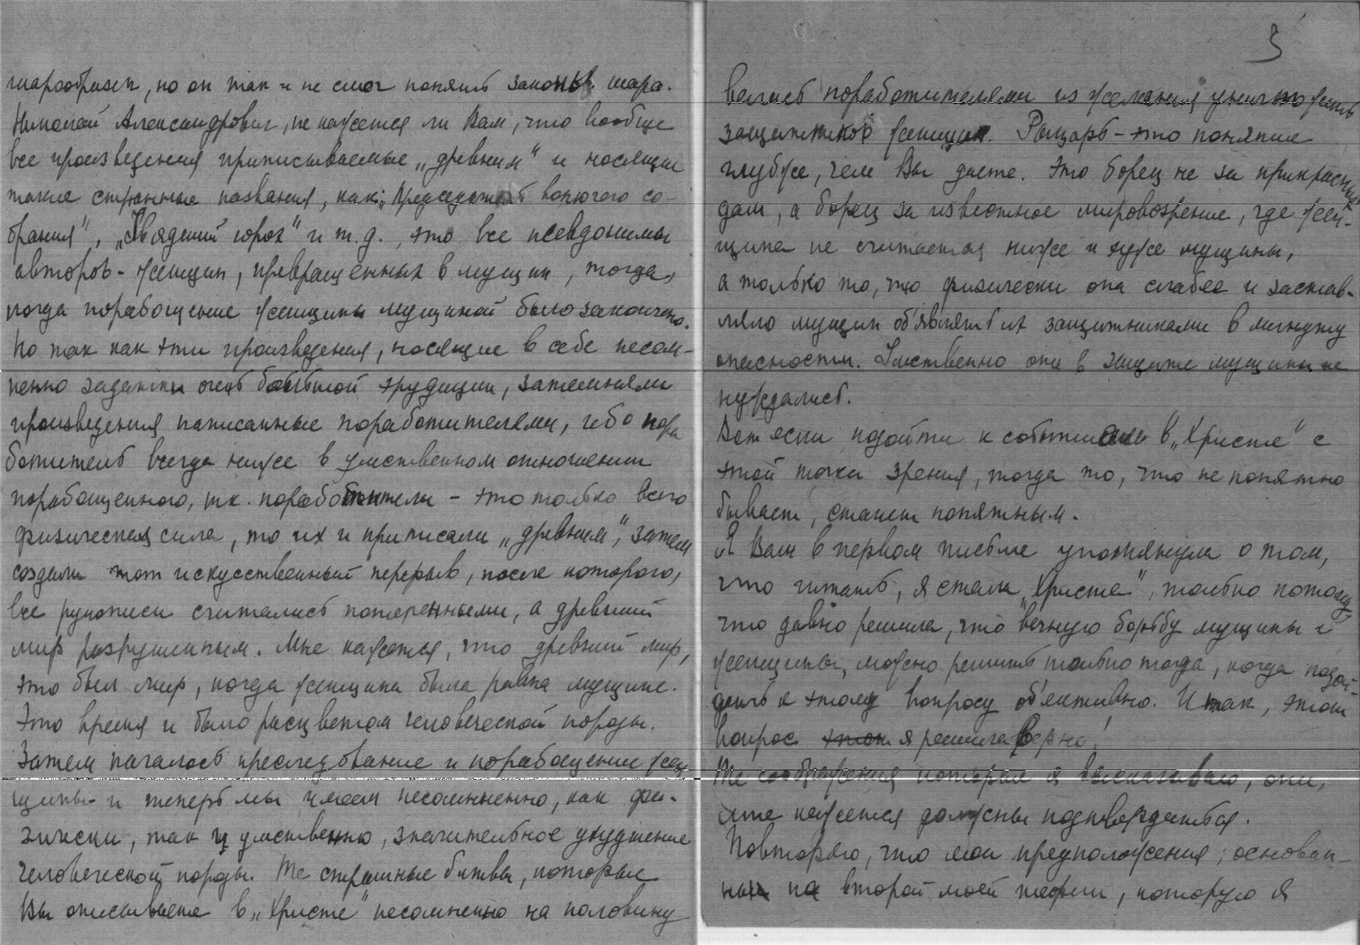 шарообразен, но он так и не смог понять законы шара.
Николай Александрович, не кажется ли Вам, что вообще
все произведения приписываемые „древним" и носящие
такие странные названия, как: „Председатель конючего со-
брания", „Звядений горох" и т.д., это все псевдонимы
авторов-женщин, превращенных в мущин, тогда,
когда порабощение женщины мущиной было закончено.
Но так как эти произведения, носящие в себе несом-
ненно задатки очень большой эрудиции, затемняли
произведения написанные поработителями, ибо пора
ботитель всегда ниже в умственном отношении
порабощенного, т.к. поработители - это только всего
физическая сила, то их и приписали „древним", затем
создали этот искусственный перерыв, после которого,
все рукописи считались потеренными, а древний
мир разрушенным. Мне кажется, что древний мир,
это был мир, когда женщина была равна мущине.
Это время и было расцветом человеческой породы.
Затем началось преследование и порабощение жен-
щины и теперь мы имеем несомненно, как фи-
зически, так и умственно, значительное ухудшение
человеческой породы. Те страшные битвы, которые
Вы описываете в „Христе" несомненно на половину
3
велись поработителями из желания уничтожить
защитников женщин. Рыцарь - это понятие
глубже, чем Вы даете. Это борец не за прикрасных
дам, а борец за известное мировозрение, где жен-
щина не считается ниже и хуже мущины,
а только то, что физически она слабее и застав-
ляло мущин об'являть их защитниками в минуту
опасности. Умственно они в защите мущины не
нуждались.
Вот если подойти к событиям в „Христе" с
этой точки зрения, тогда то, что не понятно
бывает, станет понятным.
Я Вам в первом письме упомянула о том,
что читать, я стала „Христа", только потому,
что давно решила, что вечную борьбу мущины и
женщины, можно решить только тогда, когда подой-
дешь к этому вопросу об'ективно. Итак, этот
вопрос я решила верно!
Те соображения которые я высказываю, они,
мне кажется должны подтвердаться.
Повторяю, что мои предположения, основан-
ных на второй моей теории, которую я